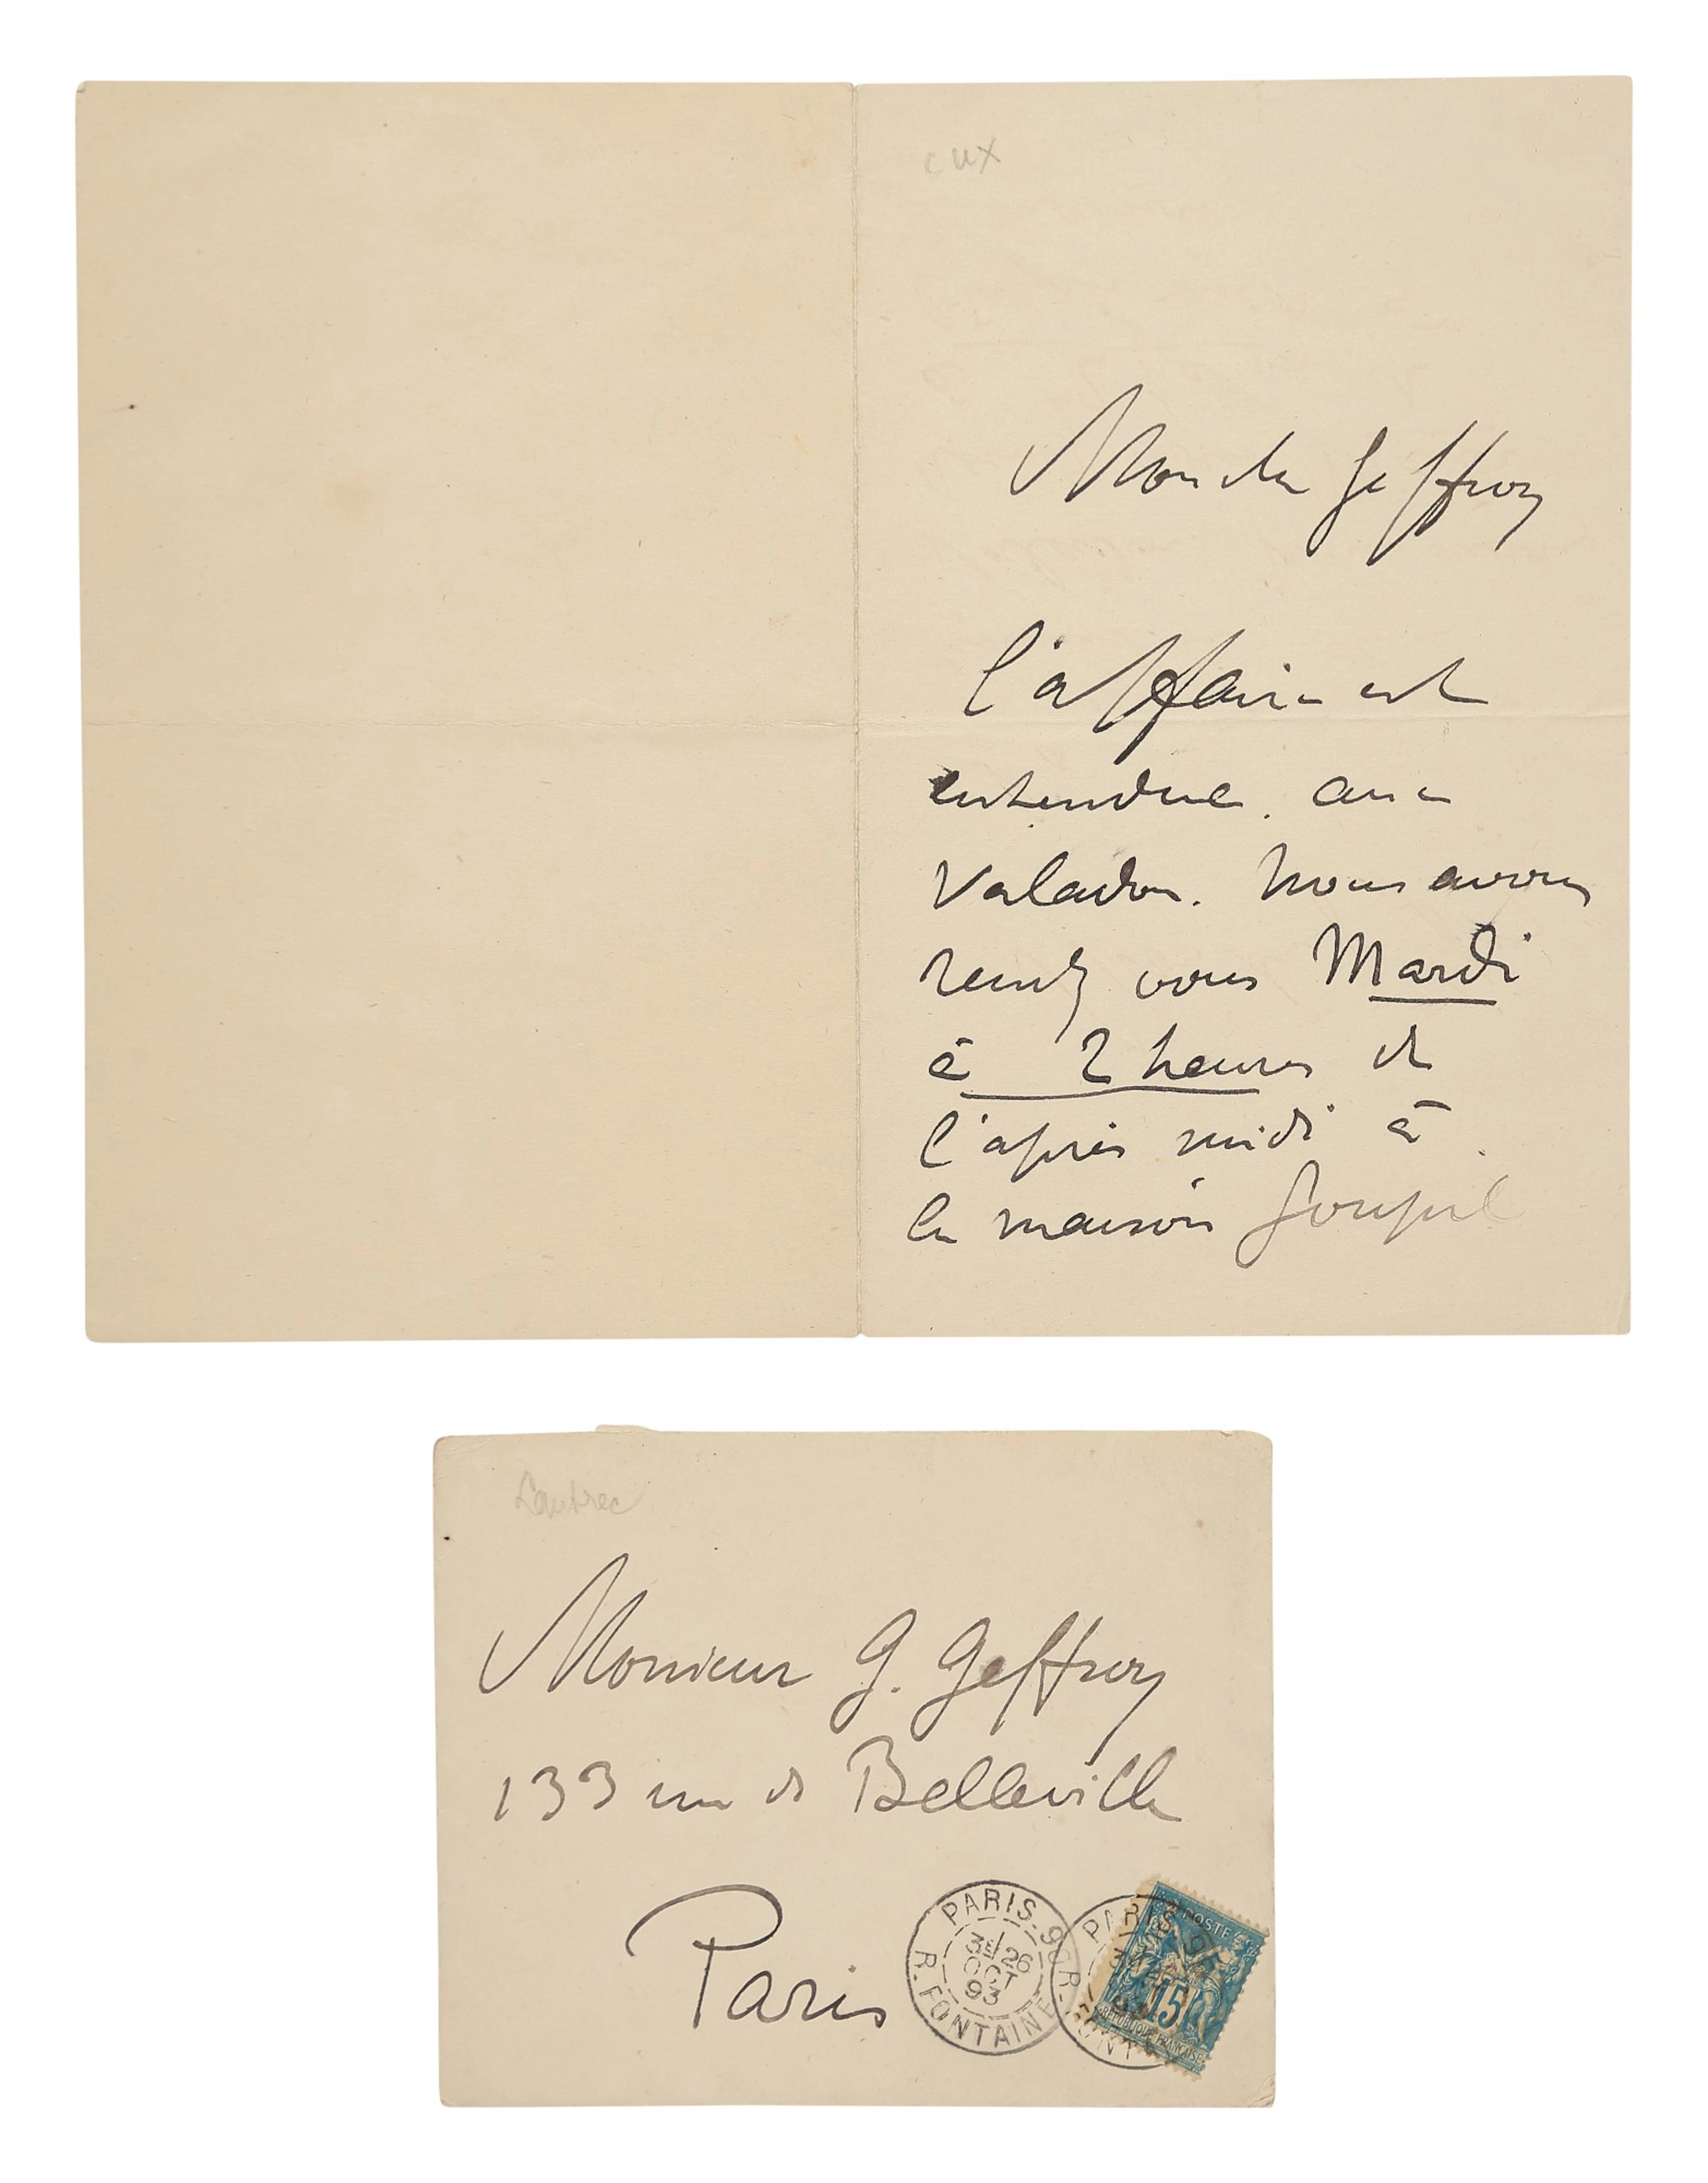 cux
Mon cher Geffroy
l'affaire est
entendue. avec
Valadon. Nous avons
rendez vous Mardi
à 2 heures de
l'après midi à
la maison Goupil
Lautrec
Monsieur G. Geffroy
133 rue de Belleville
Paris
PARIS-9
3E/26
OCT
93
R. FONTAINE
PARIS-9
POSTE
15
REPUBLIQUE FRANÇAISE